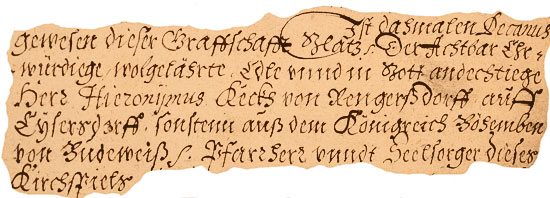 Ist dasmalen Decanus
gewesen dieser Graffschafft Glatz. Der Achtbar Ehr-
würdiege wolgelährte, Edle vnnd in Gott andechtiege
Herr Hieronijmus Kecks von Rengerßdorff, auff
Eysersdorff. sonstenn auß dem Königreich Böhemben
von Budeweiß s. Pfarrherr vnndt Seelsorger dieses
Kirchspiels